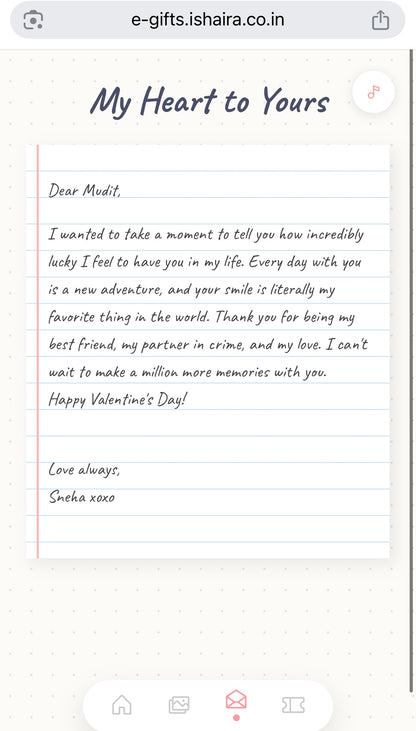 e-gifts.ishaira.co.in
My Heart to Yours
Dear Mudit,
I wanted to take a moment to tell you how incredibly
lucky I feel to have you in my life. Every day with you
is a new adventure, and your smile is literally my
favorite thing in the world. Thank you for being my
best friend, my partner in crime, and my love. I can't
wait to make a million more memories with you.
Happy Valentine's Day!
Love always,
Sneha xoxo